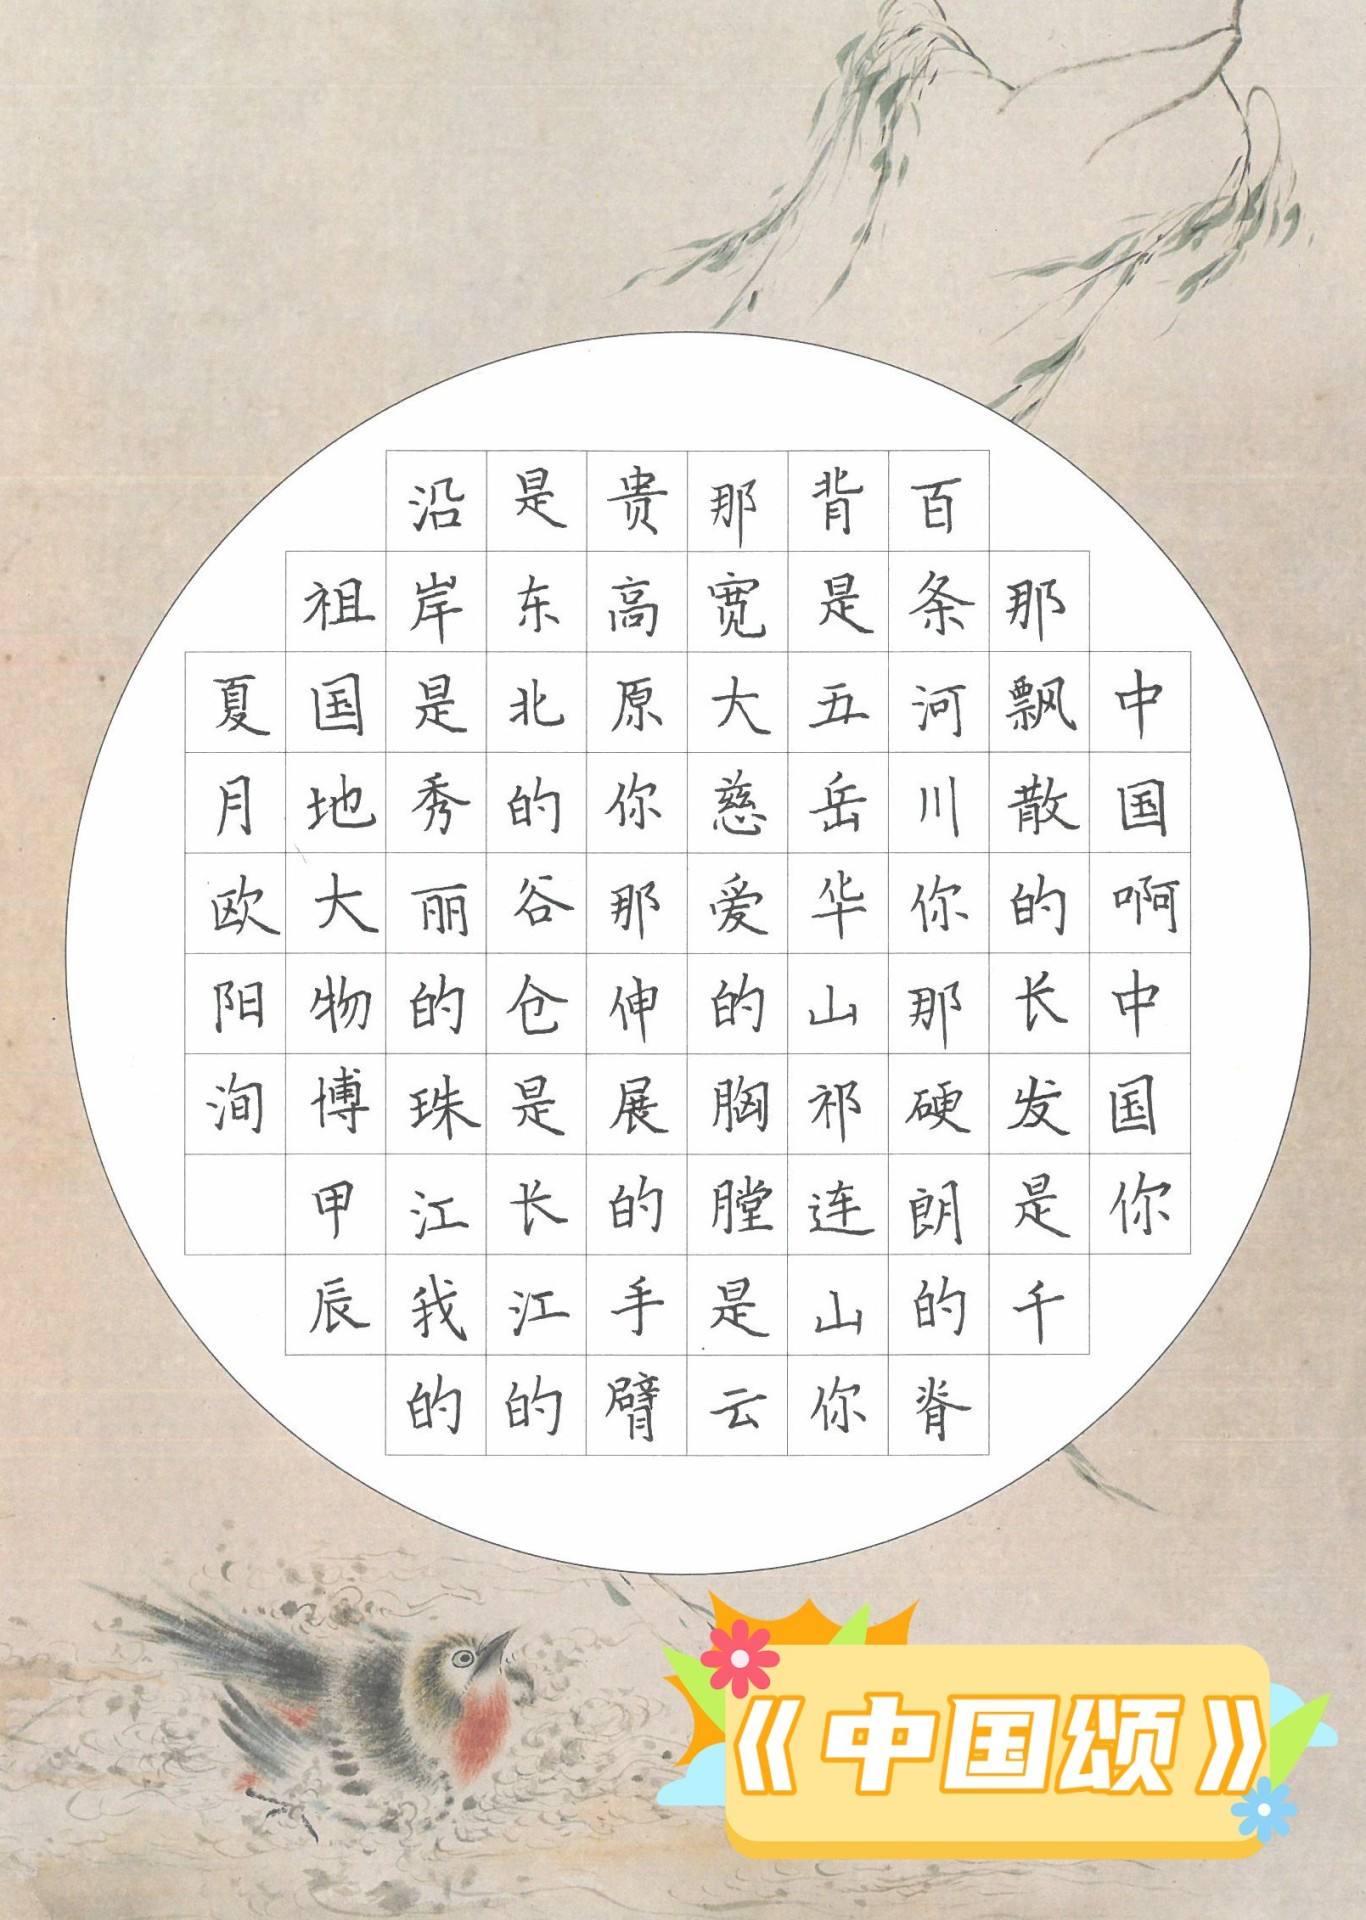 中国啊中国你
那飘散的长发是千
百条河川你那硬朗的脊
背是五岳华山祁连山你
那宽大慈爱的胸膛是云
贵高原你那伸展的手臂
是东北的谷仓是长江的
沿岸是秀丽的珠江我的
祖国地大物博甲辰
夏月欧阳洵
《中国颂》